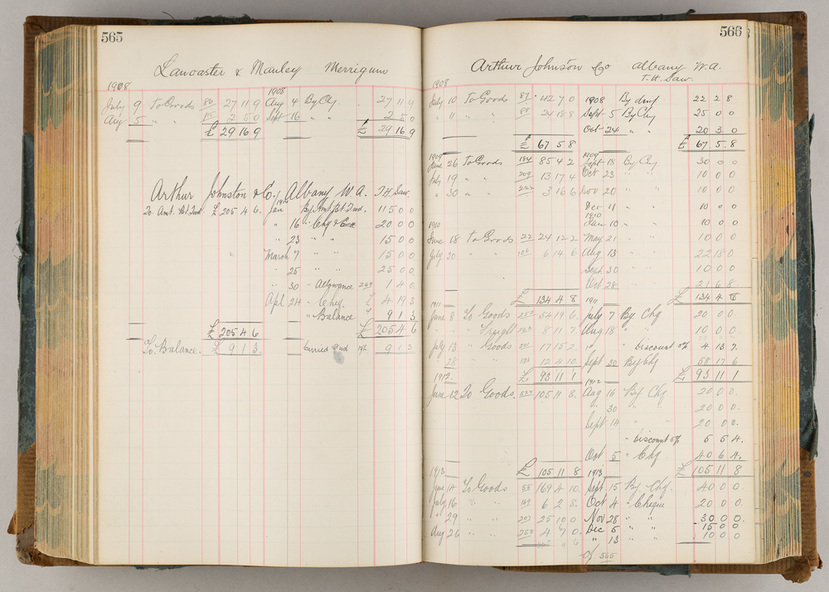 565
Lancaster & Manley Merrigum
1908 1908
July 9 To Goods 27 11 9 Aug 4 By Chq 27 11 9
Aug 5 " " 2 5 0 Sept 16 " " 2 5 0
£ 29 16 9 £ 29 16 9
Arthur Johnston & Co, Albany W.A. T.H. Saw.
To Amt. £ 205 4 6. Jan By Amt 115 0 0
" 16 " Chq 20 0 0
" 23 " " 15 0 0
March 7 " " 15 0 0
" 25 " " 25 0 0
" 30 " Allowance 1 4 0
Apl 24 " Chq. £ 4 19 3
" Balance 9 1 3
£ 205 4 6 £ 205 4 6
To Balance. £ 9 1 3 " carried fwd 9 1 3
566
Arthur Johnston & Co Albany W.A.
T.H. Saw.
1908
July 10 To Goods 87 42 7 0 1908 By 22 2 8
" 11 " " 24 18 8 Sept 5 By Chq 25 0 0
Oct 24 " " 20 3 0
£ 67 5 8 £ 67 5 8
1909 1909
June 26 To Goods 184 85 4 2 Sept 15 By Chq 30 0 0
July 19 " " 13 17 4 Oct 23 " " 10 0 0
" 30 " " 3 16 6 Nov 20 " " 10 0 0
Dec 11 " " 10 0 0
1910 1910
Jan 10 " " 10 0 0
June 18 To Goods 22 24 12 2 May 21 " " 10 0 0
July 20 " " 6 14 6 Aug 13 " " 22 18 0
Sept 30 " " 10 0 0
Oct 28 " " 21 6 8
£ 134 4 8 £ 134 4 8
1911 1911
June 8 To Goods 54 19 6 July 7 By Chq 20 0 0
" " Freight 8 11 7 Aug 18 " 10 0 0
July 13 " Goods 17 15 2 " " discount 4 13 7
" 28 " 12 4 10 Sept 20 By Chq 58 17 6
£ 93 11 1 £ 93 11 1
1912 1912
June 12 To Goods. 105 11 8. Aug 16 By Chq 20 0 0
" 30 " 20 0 0
Sept 14 " 20 0 0
" Discount 5 5 4.
Oct 5 " Chq 40 6 4.
£ 105 11 8 £ 105 11 8
1913 1913
June 14 To Goods 55 169 4 10 Sept. 15 By Chq. 40 0 0
July 16 " " 6 2 8 Oct 4 " Cheque 20 0 0
" 29 " " 25 10 0 Nov 28 " " 30 0 0
Aug 26 " " 4 7 0 Dec 5 " " 15 0 0
" 13 " " 10 0 0
565